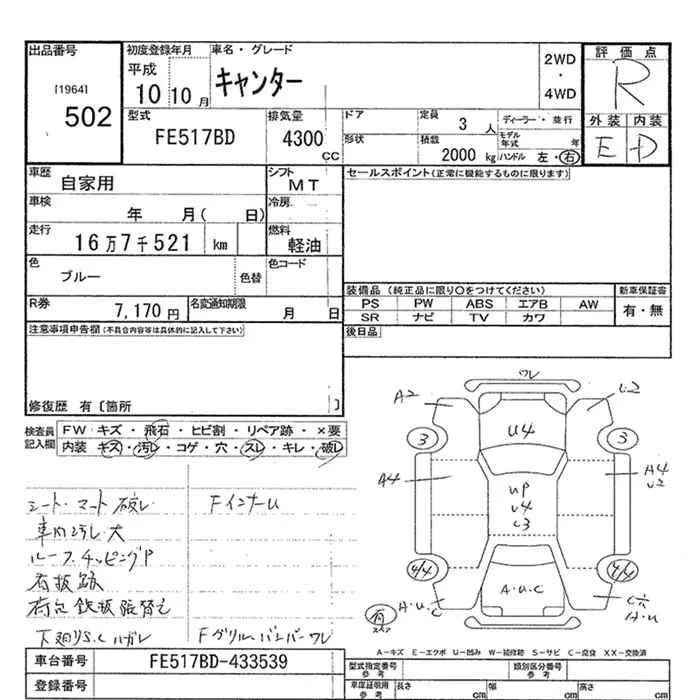 出品番号
[1964]
502
初度登録年月
平成
10 10月
車名・グレード
キャンター
2WD
・
4WD
評価点
R
外装 内装
E D
型式
FE517BD
排気量
4300
CC
ドア
形状
定員
3 人
積載
2000 kg
ディーラー・並行
モデル年式 年
ハンドル 左・右
車歴
自家用
シフト
MT
車検
年 月( 日)
冷房
走行
16万7千521 km
燃料
軽油
色
ブルー
色替
色コード
R券
7,170円
名変通知期限
月 日
セールスポイント(正常に機能するものに限ります)
装備品 (純正品に限り○をつけてください)
PS PW ABS エアB AW
SR ナビ TV カワ
新車保証書
有・無
後日品
注意事項申告欄(不具合内容等は具体的に記入して下さい)
修復歴 有〔箇所 〕
検査員記入欄
FW キズ・飛石・ヒビ割・リペア跡・×要
内装 キズ・汚レ・コゲ・穴・スレ・キレ・破レ
シート・マット破レ
Fインナーレ
車内汚レ大
ルーフチッピングP
看板跡
荷台鉄板張替え
下廻りS.C ハガレ
Fグリル・バンパーワレ
ワレ
A2
U2
3
3
U4
A4
A4
U2
UP
U4
C3
4/4
4/4
A・U・C
A・U・C
A・U
有
A−キズ E−エクボ U−凹み W−補修跡 S−サビ C−腐食 XX−交換済
車台番号
FE517BD-433539
登録番号
型式指定番号
参考
類別区分番号
参考
車庫証明用
参考
長さ cm
幅 cm
高さ cm